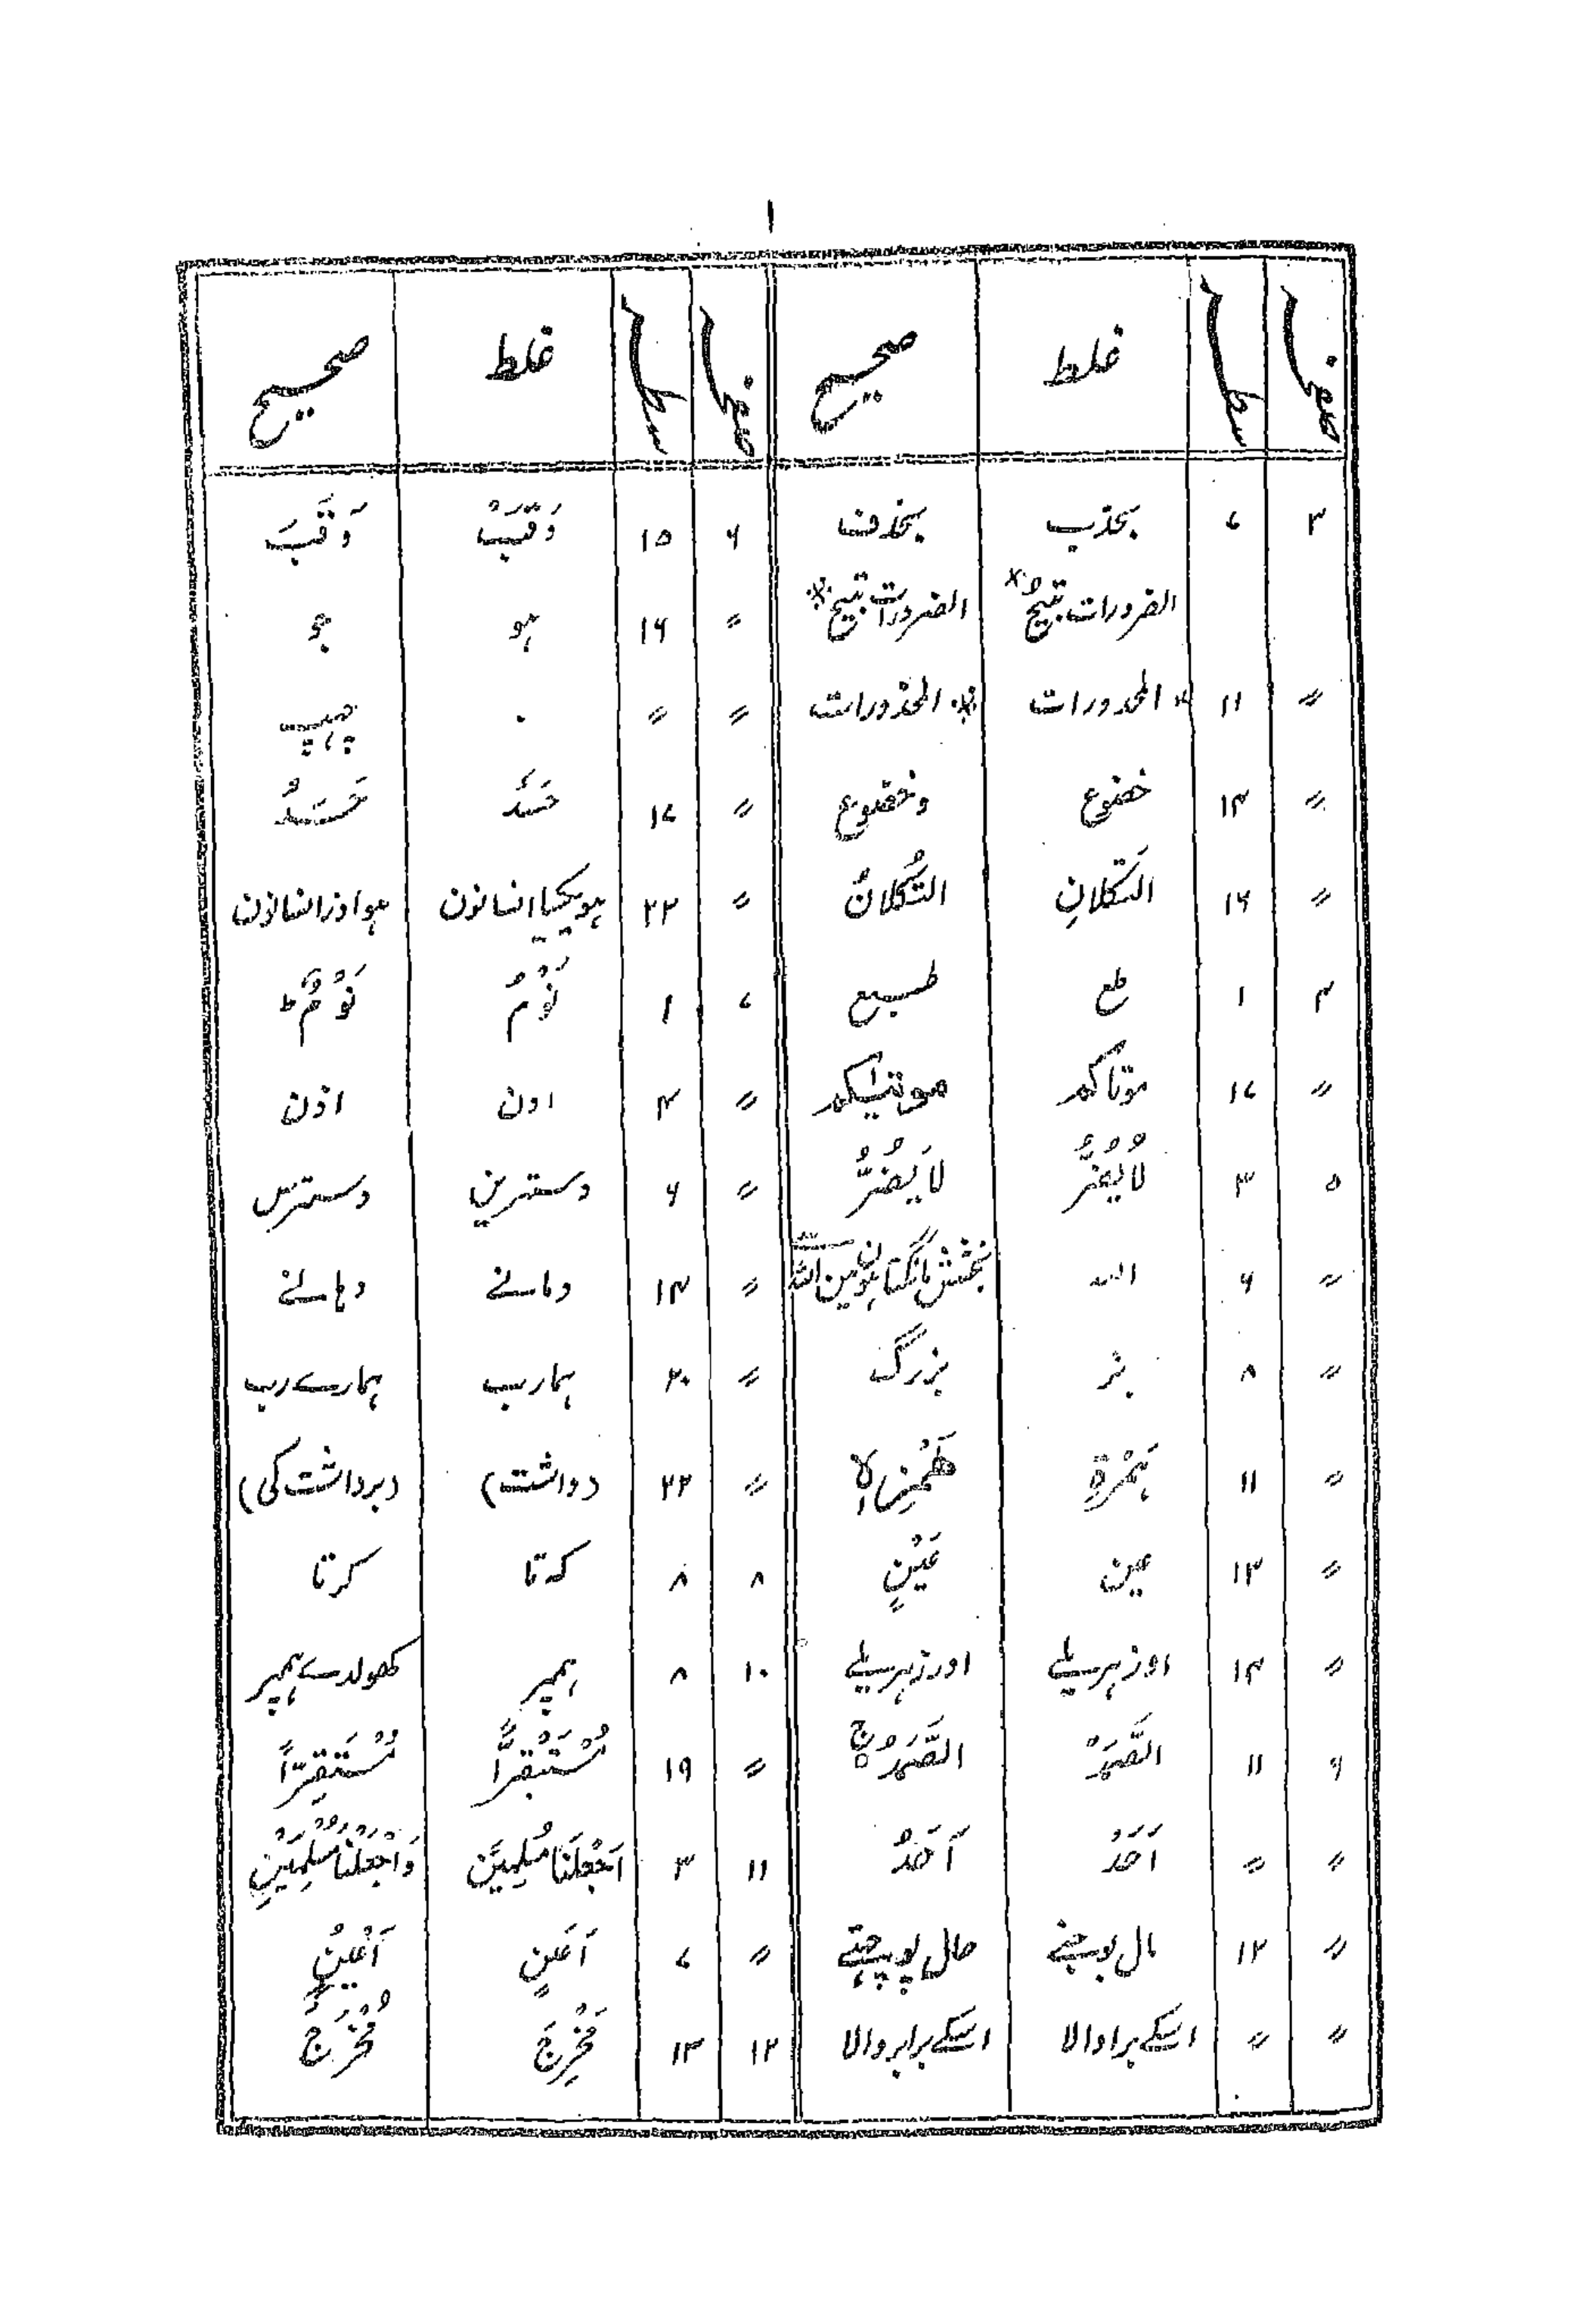 ۱
صفحہ سطر غلط صحیح صفحہ سطر غلط صحیح
۳ ۷ بحذب بحذف ۶ ۱۵ وَقَبَْ وَقَبَ
الضرورات تبیح الضرورات تبیح " ۱۶ ہو جو
" ۱۱ المحدورات المحذورات " " ۰
" ۱۴ خضوع وخضوع " ۱۷ حَسَدَ حَسَدٌ
" ۱۶ التکلانِ التُّکلانُ " ۲۲ انسانون ہو اور انسانون
۴ ۱ طع طبیع ۷ ۱ نَوْمُ نَوْمٌ ط
" ۱۷ موتاکم موتیٰکم " ۴ اون اذن
۵ ۳ لَایُضُرُّ لَایَضُرُّ " ۶ دسترین دسترس
" ۶ اللہ بخشش مانگتا ہون مین اللہ " ۱۴ وہانسے
" ۸ بز بزرگ " ۲۰ ہمارب ہمارے رب
" ۱۱ ہَمْزَۃِ هَمْزِہٖ " ۲۲ (داشت) (برداشت کی)
" ۱۳ عین عَیْنٍ ۸ ۸ کہ تا کرتا
" ۱۴ اوز ہریلے اور زہریلے ۱۰ ۸ ہمپر کھولدے ہمپر
۶ ۱۱ الصَّمَدْ الصَّمَدُ ج " ۱۹ مُسْتَبْقِرًّا مُسْتَقِرًّا
" " اَحَدُ اَحَدٌ ۱۱ ۳ اجْعَلْنَا مُسْلِمِیْنَ وَاجْعَلْنَا مُسْلِمَیْنِ
" ۱۲ مال پوچھنے حال پوچھتے " ۷ اَعَینٍ اَعْیُنٍ
" " اسکے براوالا اسکے برابر والا ۱۲ ۱۳ مَخْرِجَ مُخْرَجَ